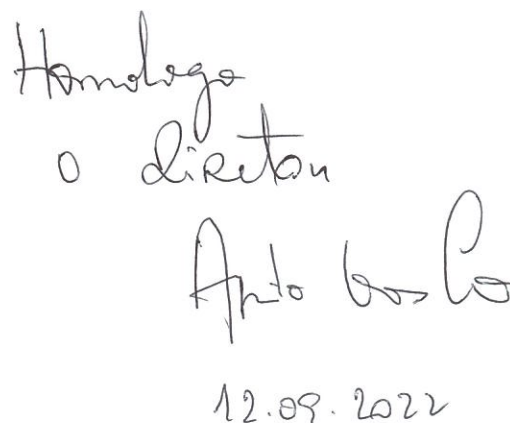 Homologo
o diretor
12.09.2022